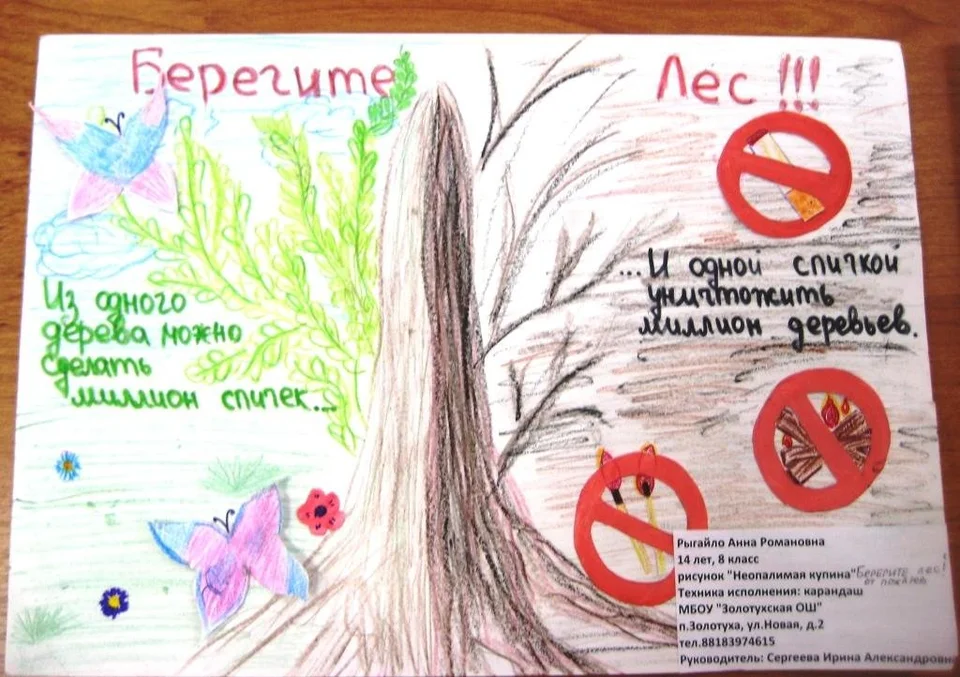 Берегите Лес !!!
Из одного
дерева можно
сделать
миллион спичек...
...И одной спичкой
уничтожить
миллион деревьев.
Рыгайло Анна Романовна
14 лет, 8 класс
рисунок "Неопалимая купина" БЕРЕГИТЕ ЛЕС!
ОТ ПОЖАРОВ
Техника исполнения: карандаш
МБОУ "Золотухская ОШ"
п.Золотуха, ул.Новая, д.2
тел.88183974615
Руководитель: Сергеева Ирина Александровн